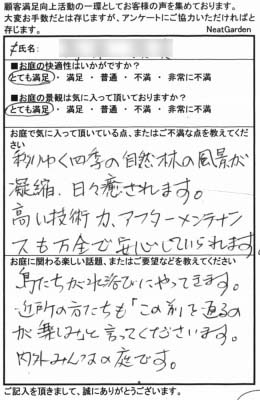 顧客満足向上活動の一環としてお客様の声を集めております。
大変お手数だとは存じますが、アンケートにご協力いただければと
存じます。
NeatGarden
氏名:
■お庭の快適性はいかがですか?
とても満足 ・ 満足 ・ 普通 ・ 不満 ・ 非常に不満
■お庭の景観は気に入って頂いておりますか?
とても満足 ・ 満足 ・ 普通 ・ 不満 ・ 非常に不満
お庭で気に入って頂いている点、またはご不満な点を教えてください
移りゆく四季の自然林の風景が
凝縮、日々癒されます。
高い技術力、アフターメンテナン
スも万全で安心していられます。
お庭に関わる楽しい話題、またはご要望などを教えてください
鳥たちが水浴びにやってきます。
近所の方たちも「この前を通るの
が楽しみ」と言ってくださいます。
内外みんなの庭です。
ご記入を頂きまして、誠にありがとうございます。